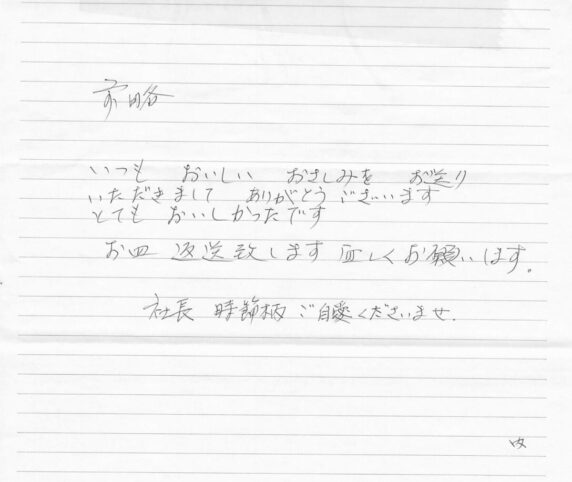 前略
いつも おいしい おさしみを お送り
いただきまして ありがとうございます
とても おいしかったです
お皿 返送致します 宜しくお願いします。
社長 時節柄 ご自愛くださいませ.